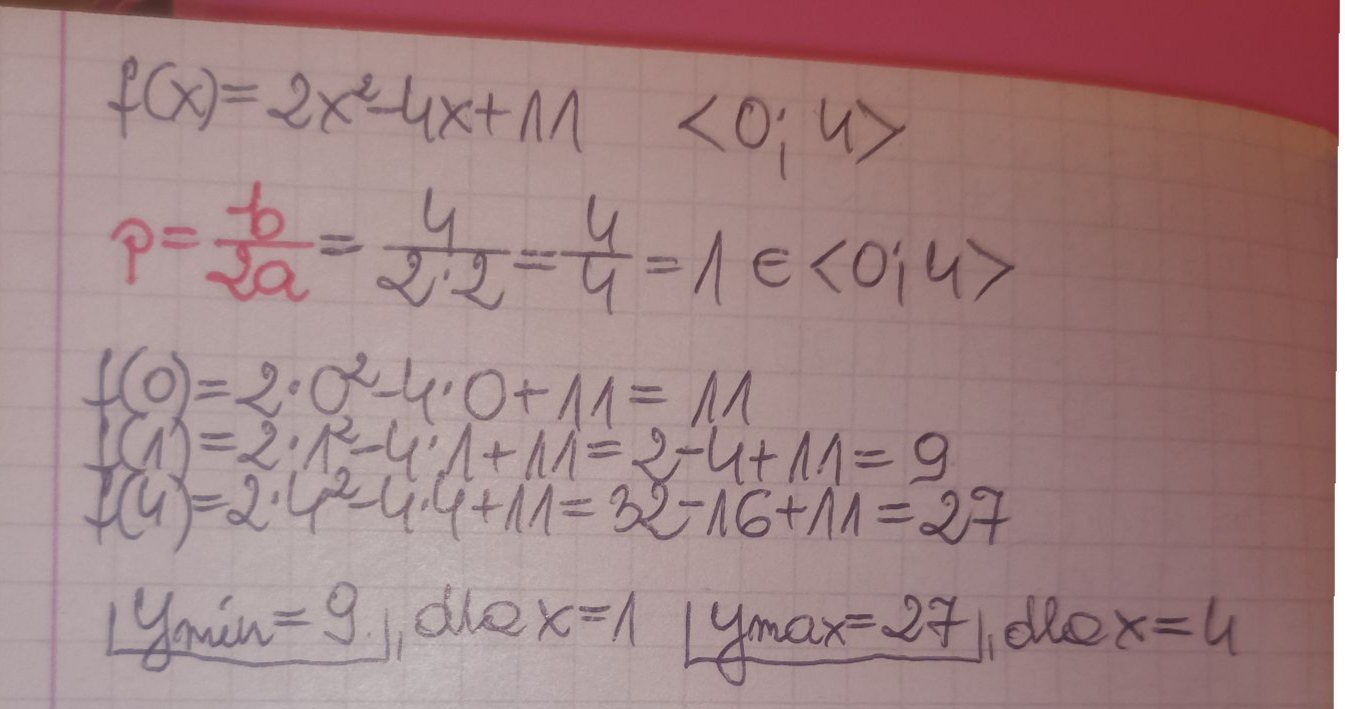 f(x)=2x²-4x+11 <0;4>
p=-b/2a=4/2·2=4/4=1∈<0;4>
f(0)=2·0²-4·0+11=11
f(1)=2·1²-4·1+11=2-4+11=9
f(4)=2·4²-4·4+11=32-16+11=27
ymin=9, dla x=1 ymax=27, dla x=4